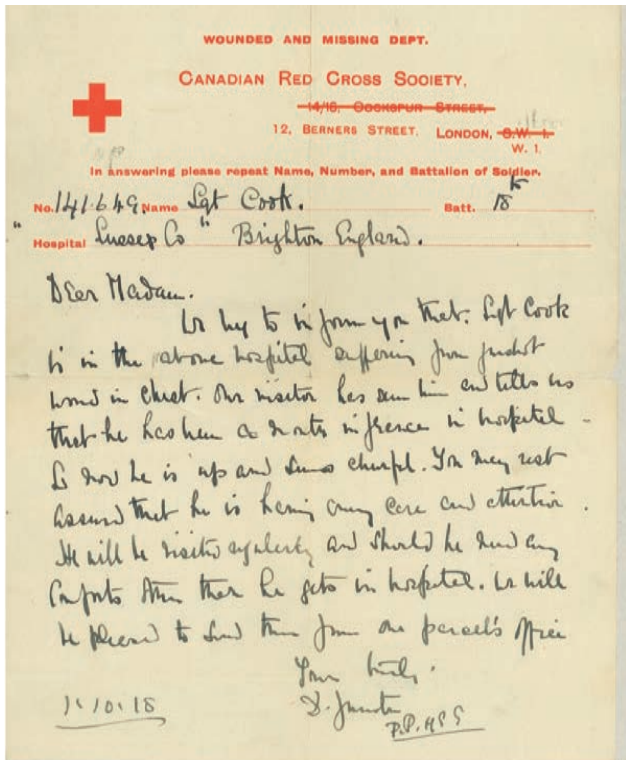 WOUNDED AND MISSING DEPT.
CANADIAN RED CROSS SOCIETY,
14/16, COCKSPUR STREET,
12, BERNERS STREET, LONDON, S.W. 1.
W. 1.
In answering please repeat Name, Number, and Battalion of Soldier.
No. 141649 Name Sgt Cook. Batt. 18th
" Hospital Sussex Co " Brighton England.
Dear Madam.
We beg to inform you that. Sgt Cook
is in the above hospital suffering from gunshot
wound in chest. Our visitor has seen him and tells us
that he has been a month in France in hospital -
& now he is up and seems cheerful. You may rest
assured that he is having every care and attention.
He will be visited regularly and should he need any
comforts other than he gets in hospital. we will
be pleased to send them from our parcels office
Yours truly.
D.
P.P.
10.18